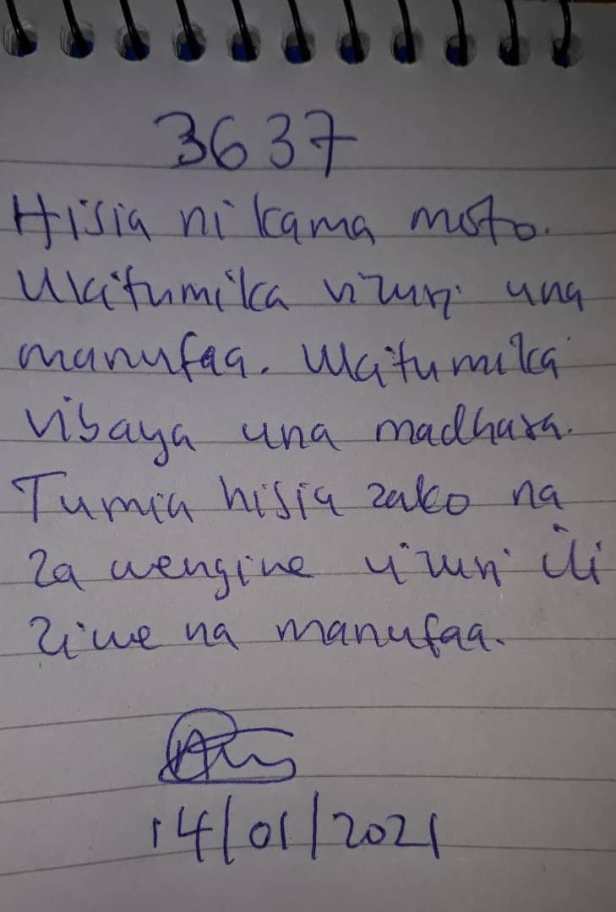 3637
Hisia ni kama moto.
Ukitumika vizuri una
manufaa. Ukitumika
vibaya una madhara.
Tumia hisia zako na
za wengine vizuri ili
ziwe na manufaa.
14/01/2021